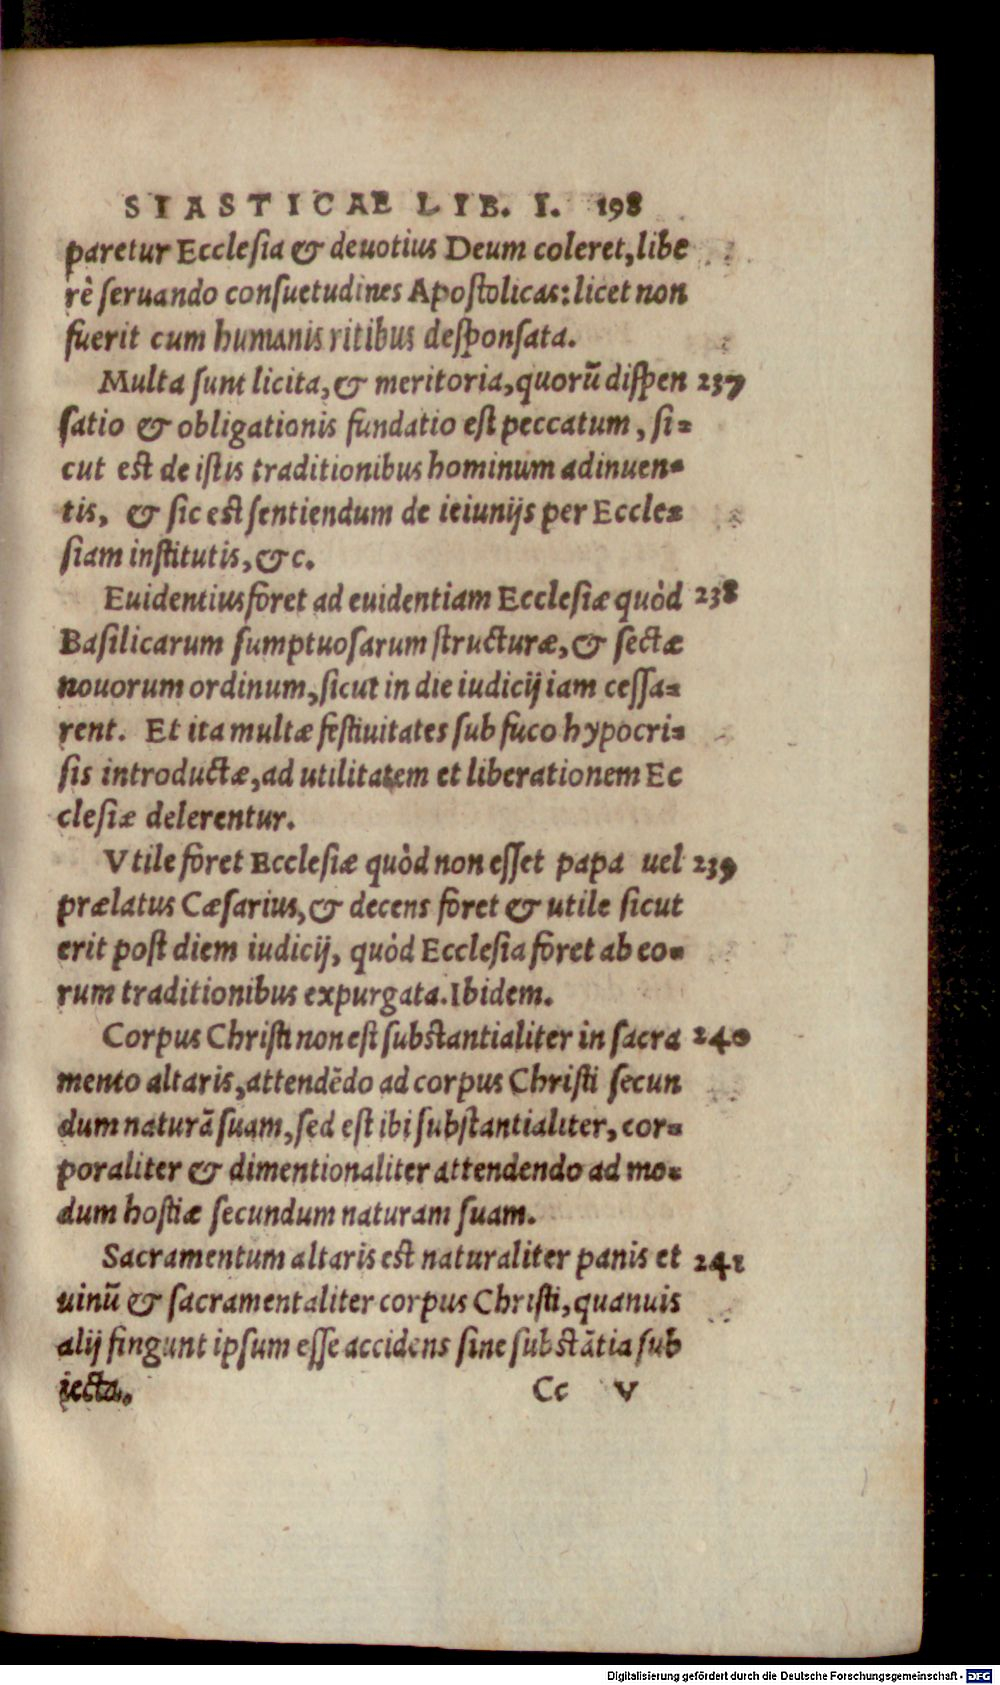 SIASTICAE LIB. I. 198
paretur Ecclesia & deuotius Deum coleret, libe
rè seruando consuetudines Apostolicas: licet non
fuerit cum humanis ritibus desponsata.
Multa sunt licita, & meritoria, quorũ dispen 237
satio & obligationis fundatio est peccatum, si=
cut est de istis traditionibus hominum adinuen=
tis, & sic est sentiendum de ieiunijs per Eccle=
siam institutis, &c.
Euidentius foret ad euidentiam Ecclesiæ quòd 238
Basilicarum sumptuosarum structuræ, & sectæ
nouorum ordinum, sicut in die iudicij iam cessa=
rent. Et ita multæ festiuitates sub fuco hypocri=
sis introductæ, ad utilitatem et liberationem Ec
clesiæ delerentur.
Vtile foret Ecclesiæ quòd non esset papa uel 239
prælatus Cæsarius, & decens foret & utile sicut
erit post diem iudicij, quòd Ecclesia foret ab eo=
rum traditionibus expurgata. Ibidem.
Corpus Christi non est substantialiter in sacra 240
mento altaris, attendẽdo ad corpus Christi secun
dum naturã suam, sed est ibi substantialiter, cor=
poraliter & dimentionaliter attendendo ad mo=
dum hostiæ secundum naturam suam.
Sacramentum altaris est naturaliter panis et 241
uinũ & sacramentaliter corpus Christi, quanuis
alij fingunt ipsum esse accidens sine substãtia sub
iecta. Cc V
Digitalisierung gefördert durch die Deutsche Forschungsgemeinschaft - DFG